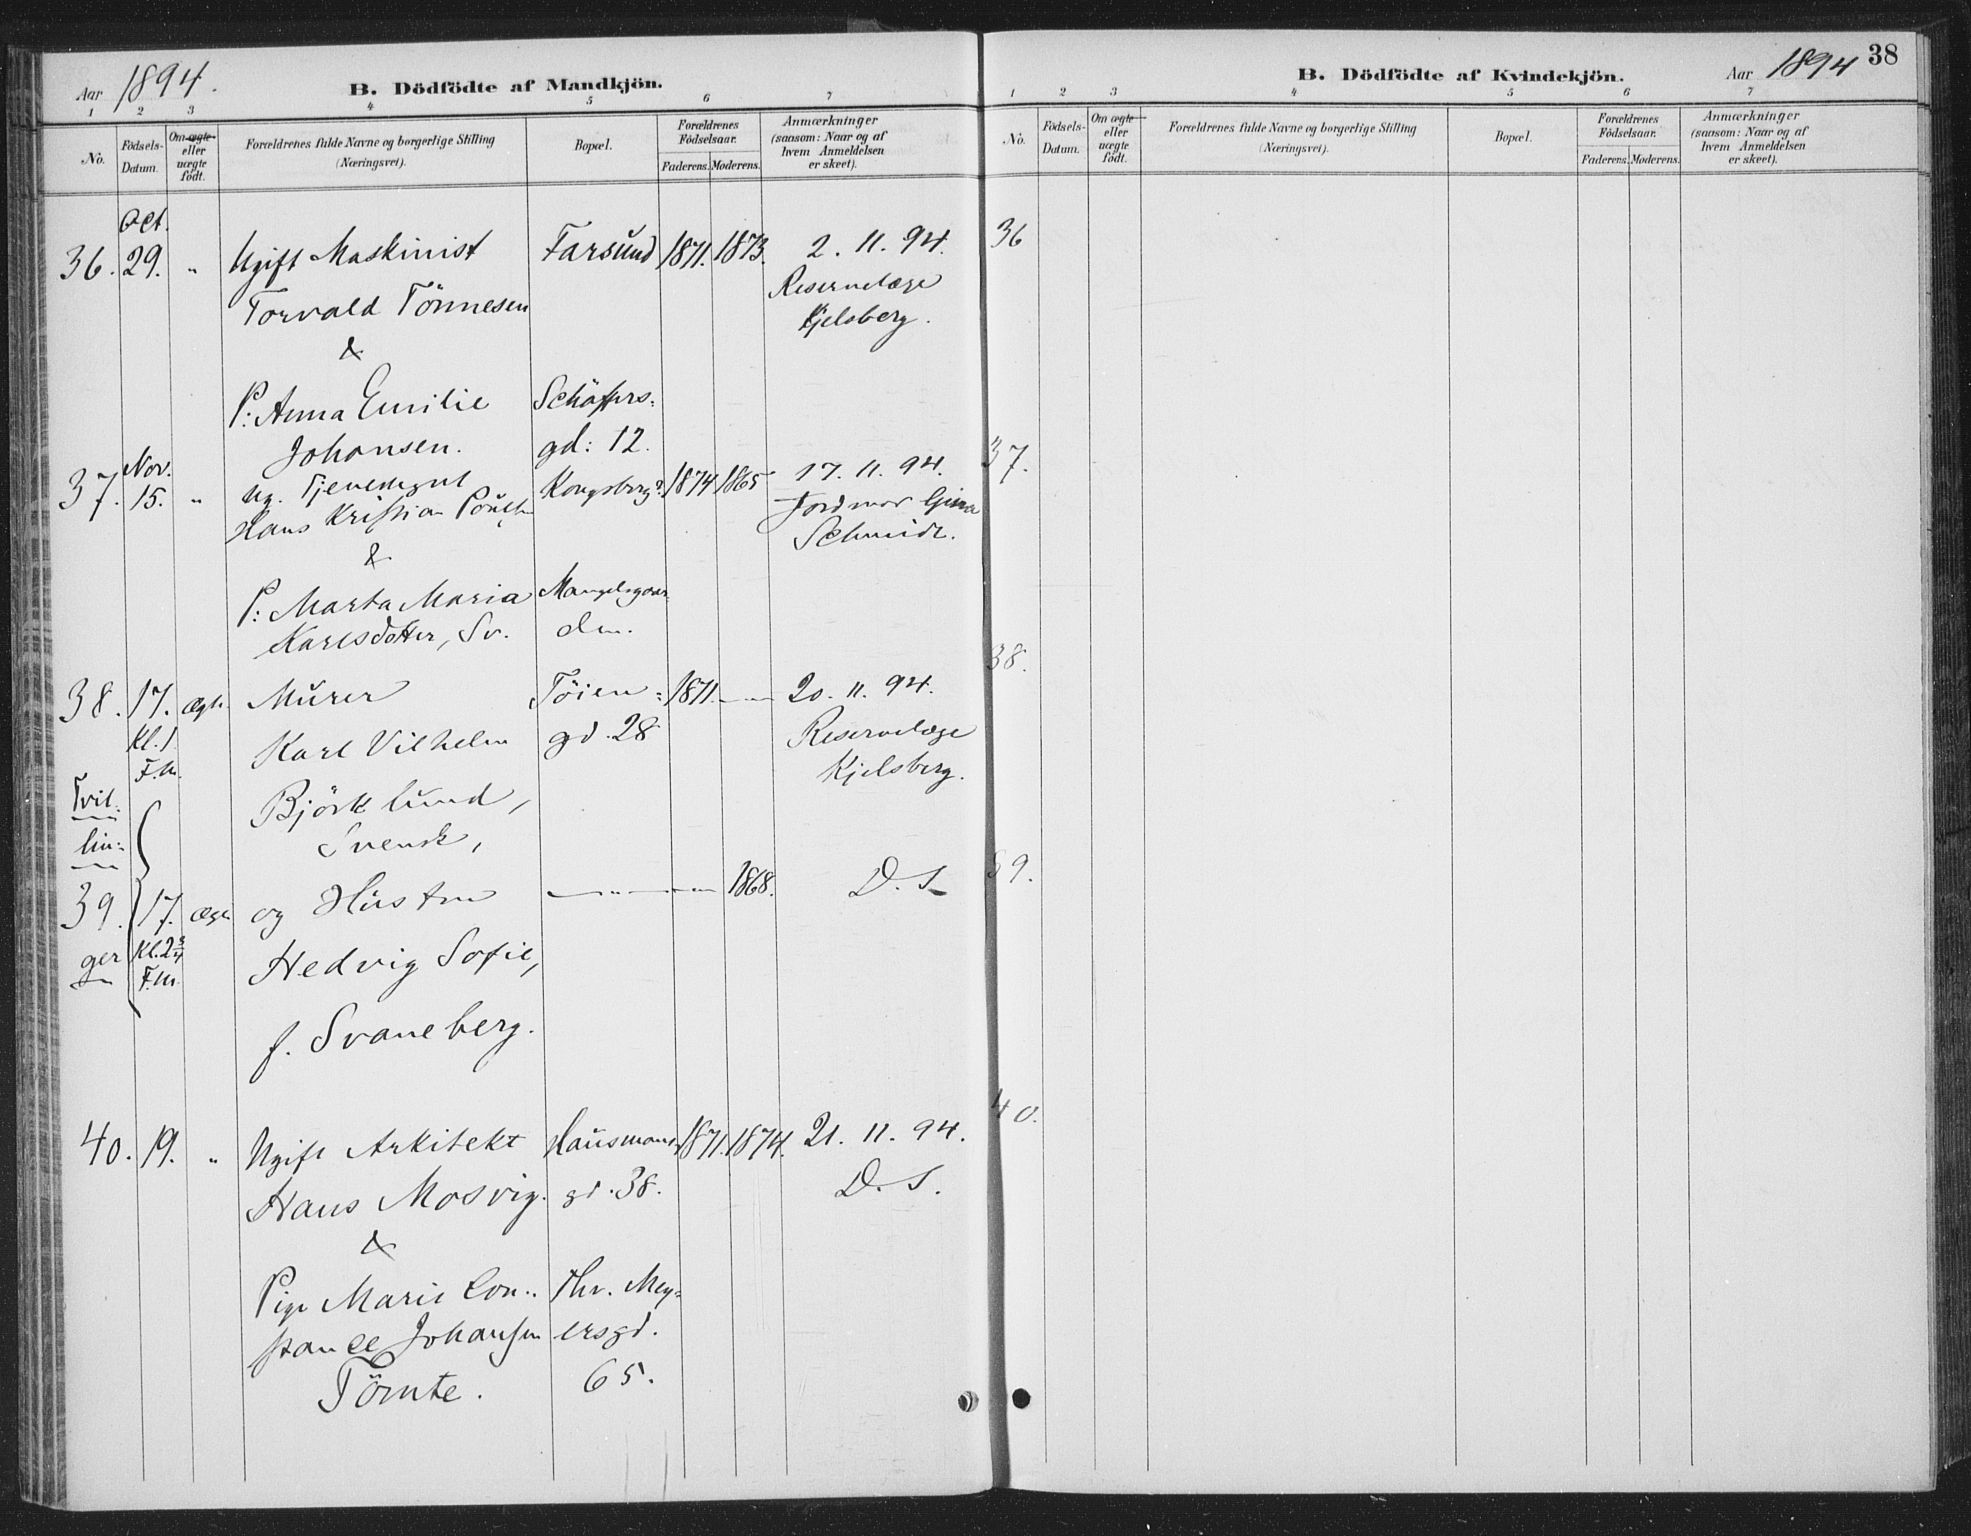 Aar 1894.
B. Dödfödte af Mandkjön.
1 2 3 4 5 6 7
No.
Födsels-
Datum.
Om ægte
eller
uægte
født.
Forældrenes fulde Navne og borgerlige Stilling
(Næringsvei).
Bopæl.
Forældrenes
Födselsaar.
Faderens. Moderens.
Anmærkninger
(saasom: Naar og af
hvem Anmeldelsen
er skeet).
Oct.
36. 29. " Ugift Maskinist Farsund 1871. 1873. 2. 11. 94.
Torvald Tönnesen Reservelæge
& Kjelsberg.
P: Anna Emilie Schäffers-
Johansen. gd: 12.
Nov.
37. 15. " Ug. Tjenestegut Kongsberg? 1874 1865 17. 11. 94.
Hans Kristian Jordmor Gina
& Schmidt.
P: Marta Maria Mangelsgaar-
Karlsdotter, Sv. den.
38. 17. ægte Murer Töien- 1871. — 20. 11. 94.
Kl. 1 Karl Vilhelm gd. 28 Reservelæge
F.m. Kjelsberg.
Tvil- Björklund,
lin- Svensk,
39. 17. ægte og Hustru — " — 1868. D. S.
ger Kl. 2 3/4 Hedvig Sofie,
F.m.
f. Svaneberg.
40. 19. " Ugift Arkitekt Hausmans- 1871. 1874. 21. 11. 94.
Hans Mosvig. gd. 38. D. S.
&
Pige Marie Con- Thv. Mey-
stance Johansen ersgd.
Tömte. 65.
B. Dödfödte af Kvindekjön.
Aar 1894
38
1 2 3 4 5 6 7
No.
Födsels-
Datum.
Om ægte
eller
uægte
födt.
Forældrenes fulde Navne og borgerlige Stilling
(Næringsvei).
Bopæl.
Forældrenes
Födselsaar.
Faderens. Moderens.
Anmærkninger
(saasom: Naar og af
hvem Anmeldelsen
er skeet).
36
37.
38.
39.
40.